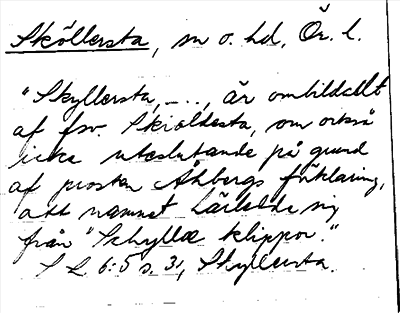 Sköllersta, sn o. hd, Ör. l.
"Skyllersta, – . . , är ombildallt
af fsv. Skiældesta, om också
icke uteslutande på grund
af prosten Åhbergs förklaring,
att namnet härledde sig
från "Schyllæ klippor."
S L 6:5 s. 31, Skyllersta.